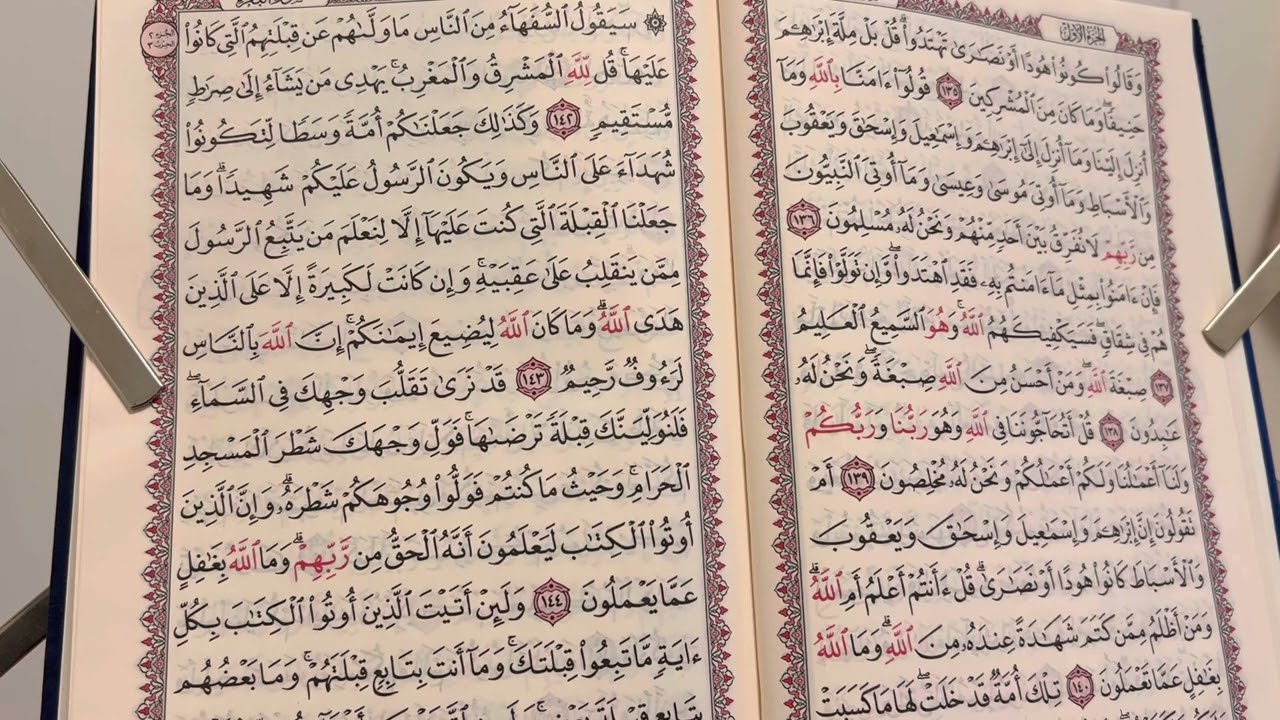 الجزء الأول
وَقَالُوا۟ كُونُوا۟ هُودًا أَوْ نَصَـٰرَىٰ تَهْتَدُوا۟ ۗ قُلْ بَلْ مِلَّةَ إِبْرَٰهِـۧمَ
حَنِيفًا ۖ وَمَا كَانَ مِنَ ٱلْمُشْرِكِينَ ١٣٥ قُولُوٓا۟ ءَامَنَّا بِٱللَّهِ وَمَآ
أُنزِلَ إِلَيْنَا وَمَآ أُنزِلَ إِلَىٰٓ إِبْرَٰهِـۧمَ وَإِسْمَـٰعِيلَ وَإِسْحَـٰقَ وَيَعْقُوبَ
وَٱلْأَسْبَاطِ وَمَآ أُوتِىَ مُوسَىٰ وَعِيسَىٰ وَمَآ أُوتِىَ ٱلنَّبِيُّونَ
مِن رَّبِّهِمْ لَا نُفَرِّقُ بَيْنَ أَحَدٍ مِّنْهُمْ وَنَحْنُ لَهُۥ مُسْلِمُونَ ١٣٦
فَإِنْ ءَامَنُوا۟ بِمِثْلِ مَآ ءَامَنتُم بِهِۦ فَقَدِ ٱهْتَدَوا۟ ۖ وَّإِن تَوَلَّوْا۟ فَإِنَّمَا
هُمْ فِى شِقَاقٍ ۖ فَسَيَكْفِيكَهُمُ ٱللَّهُ ۚ وَهُوَ ٱلسَّمِيعُ ٱلْعَلِيمُ
١٣٧ صِبْغَةَ ٱللَّهِ ۖ وَمَنْ أَحْسَنُ مِنَ ٱللَّهِ صِبْغَةً ۖ وَنَحْنُ لَهُۥ
عَـٰبِدُونَ ١٣٨ قُلْ أَتُحَآجُّونَنَا فِى ٱللَّهِ وَهُوَ رَبُّنَا وَرَبُّكُمْ
وَلَنَآ أَعْمَـٰلُنَا وَلَكُمْ أَعْمَـٰلُكُمْ وَنَحْنُ لَهُۥ مُخْلِصُونَ ١٣٩ أَمْ
تَقُولُونَ إِنَّ إِبْرَٰهِـۧمَ وَإِسْمَـٰعِيلَ وَإِسْحَـٰقَ وَيَعْقُوبَ
وَٱلْأَسْبَاطَ كَانُوا۟ هُودًا أَوْ نَصَـٰرَىٰ ۗ قُلْ ءَأَنتُمْ أَعْلَمُ أَمِ ٱللَّهُ ۗ
وَمَنْ أَظْلَمُ مِمَّن كَتَمَ شَهَـٰدَةً عِندَهُۥ مِنَ ٱللَّهِ ۗ وَمَا ٱللَّهُ
بِغَـٰفِلٍ عَمَّا تَعْمَلُونَ ١٤٠ تِلْكَ أُمَّةٌ قَدْ خَلَتْ ۖ لَهَا مَا كَسَبَتْ
سَيَقُولُ ٱلسُّفَهَآءُ مِنَ ٱلنَّاسِ مَا وَلَّىٰهُمْ عَن قِبْلَتِهِمُ ٱلَّتِى كَانُوا۟
عَلَيْهَا ۚ قُل لِّلَّهِ ٱلْمَشْرِقُ وَٱلْمَغْرِبُ ۚ يَهْدِى مَن يَشَآءُ إِلَىٰ صِرَٰطٍ
مُّسْتَقِيمٍ ١٤٢ وَكَذَٰلِكَ جَعَلْنَـٰكُمْ أُمَّةً وَسَطًا لِّتَكُونُوا۟
شُهَدَآءَ عَلَى ٱلنَّاسِ وَيَكُونَ ٱلرَّسُولُ عَلَيْكُمْ شَهِيدًا ۗ وَمَا
جَعَلْنَا ٱلْقِبْلَةَ ٱلَّتِى كُنتَ عَلَيْهَآ إِلَّا لِنَعْلَمَ مَن يَتَّبِعُ ٱلرَّسُولَ
مِمَّن يَنقَلِبُ عَلَىٰ عَقِبَيْهِ ۚ وَإِن كَانَتْ لَكَبِيرَةً إِلَّا عَلَى ٱلَّذِينَ
هَدَى ٱللَّهُ ۗ وَمَا كَانَ ٱللَّهُ لِيُضِيعَ إِيمَـٰنَكُمْ ۚ إِنَّ ٱللَّهَ بِٱلنَّاسِ
لَرَءُوفٌ رَّحِيمٌ ١٤٣ قَدْ نَرَىٰ تَقَلُّبَ وَجْهِكَ فِى ٱلسَّمَآءِ ۖ
فَلَنُوَلِّيَنَّكَ قِبْلَةً تَرْضَىٰهَا ۚ فَوَلِّ وَجْهَكَ شَطْرَ ٱلْمَسْجِدِ
ٱلْحَرَامِ ۚ وَحَيْثُ مَا كُنتُمْ فَوَلُّوا۟ وُجُوهَكُمْ شَطْرَهُۥ ۗ وَإِنَّ ٱلَّذِينَ
أُوتُوا۟ ٱلْكِتَـٰبَ لَيَعْلَمُونَ أَنَّهُ ٱلْحَقُّ مِن رَّبِّهِمْ ۗ وَمَا ٱللَّهُ بِغَـٰفِلٍ
عَمَّا يَعْمَلُونَ ١٤٤ وَلَئِنْ أَتَيْتَ ٱلَّذِينَ أُوتُوا۟ ٱلْكِتَـٰبَ بِكُلِّ
ءَايَةٍ مَّا تَبِعُوا۟ قِبْلَتَكَ ۚ وَمَآ أَنتَ بِتَابِعٍ قِبْلَتَهُمْ ۚ وَمَا بَعْضُهُم